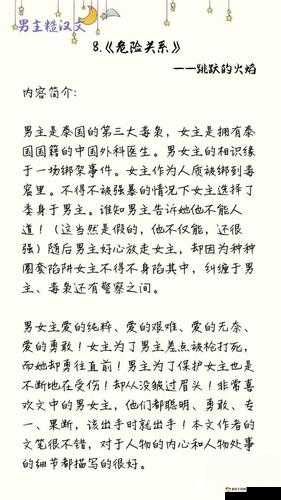 男主糙汉文
8.《危险关系》
——跳跃的火焰
内容简介：
男主是泰国的第三大毒枭，女主是拥有泰
国国籍的中国外科医生。男女主的相识缘
于一场绑架事件。女主作为人质被绑到毒
窝里。不得不被强暴的情况下女主选择了
委身于男主。谁知男主告诉她他不能人
道！（这当然是假的，他不仅能，还很
强）随后男主好心放走女主，却因为种种
圈套陷阱女主不得不身陷其中，纠缠于男
主、毒枭还有警察之间。
男女主爱的纯粹、爱的艰难、爱的无奈、
爱的勇敢！女主为了男主差点被枪打死，
而她却勇往直前！男主为了保护女主也是
不断地在受伤！却从没皱过眉头！非常喜
欢文中的男女主，他们都聪明、勇敢、专
一、果断，该出手时就出手！本文作者的
文笔很不错，对于人物的内心和人物处事
的细节都描写的很好。